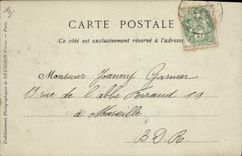 CARTE POSTALE
Ce côté est exclusivement réservé à l'adresse
Monsieur Joanny Garnier
19 rue de l'abbé Ferraud 19
à Marseille
B.D.R
Établissements Photographiques de NEURDEIN Frères. — Paris